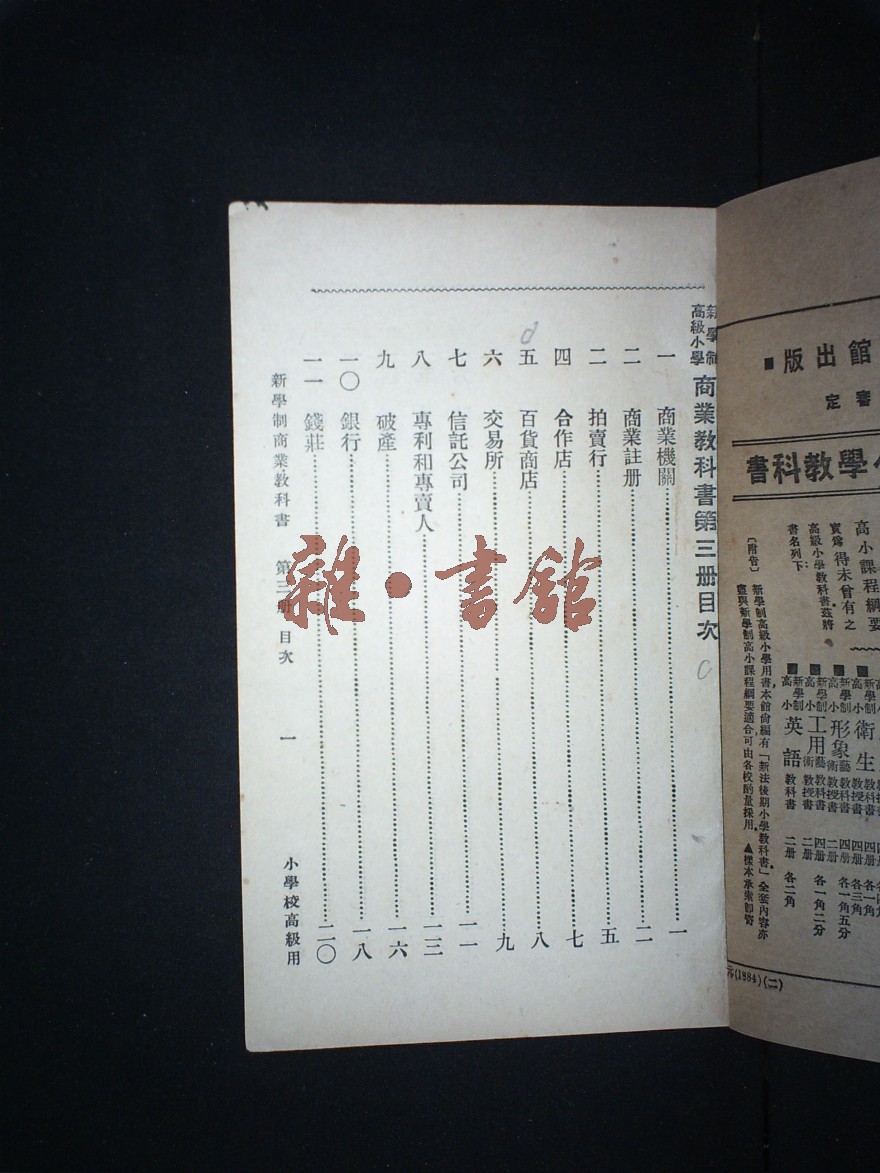 新學制
高級小學
商業教科書第三册目次
一 商業機關 一
二 商業註册 二
二 拍賣行 五
四 合作店 七
五 百貨商店 八
六 交易所 九
七 信託公司 一一
八 專利和專賣人 一三
九 破產 一六
一〇 銀行 一八
一一 錢莊 二〇
新學制商業教科書 第三册 目次 一 小學校高級用
雜·書館
館出版
審定
小學教科書
高小課程綱要
實爲得未曾有之
高級小學教科書茲將
書名列下：
〔附告〕 新學制高級小學用書本館尙編有「新法後期小學教科書」全套內容亦
盡與新學制高小課程綱要適合可由各校酌量採用 ▲樣本承索卽寄
衛生
新學制高小 形象藝術 教科書 四册 各一角五分
教授書 二册
新學制高小 工用藝術 教科書 四册 各一角二分
教授書 二册
新學制高小 英語 教科書 二册 各二角
元(1984)(二)